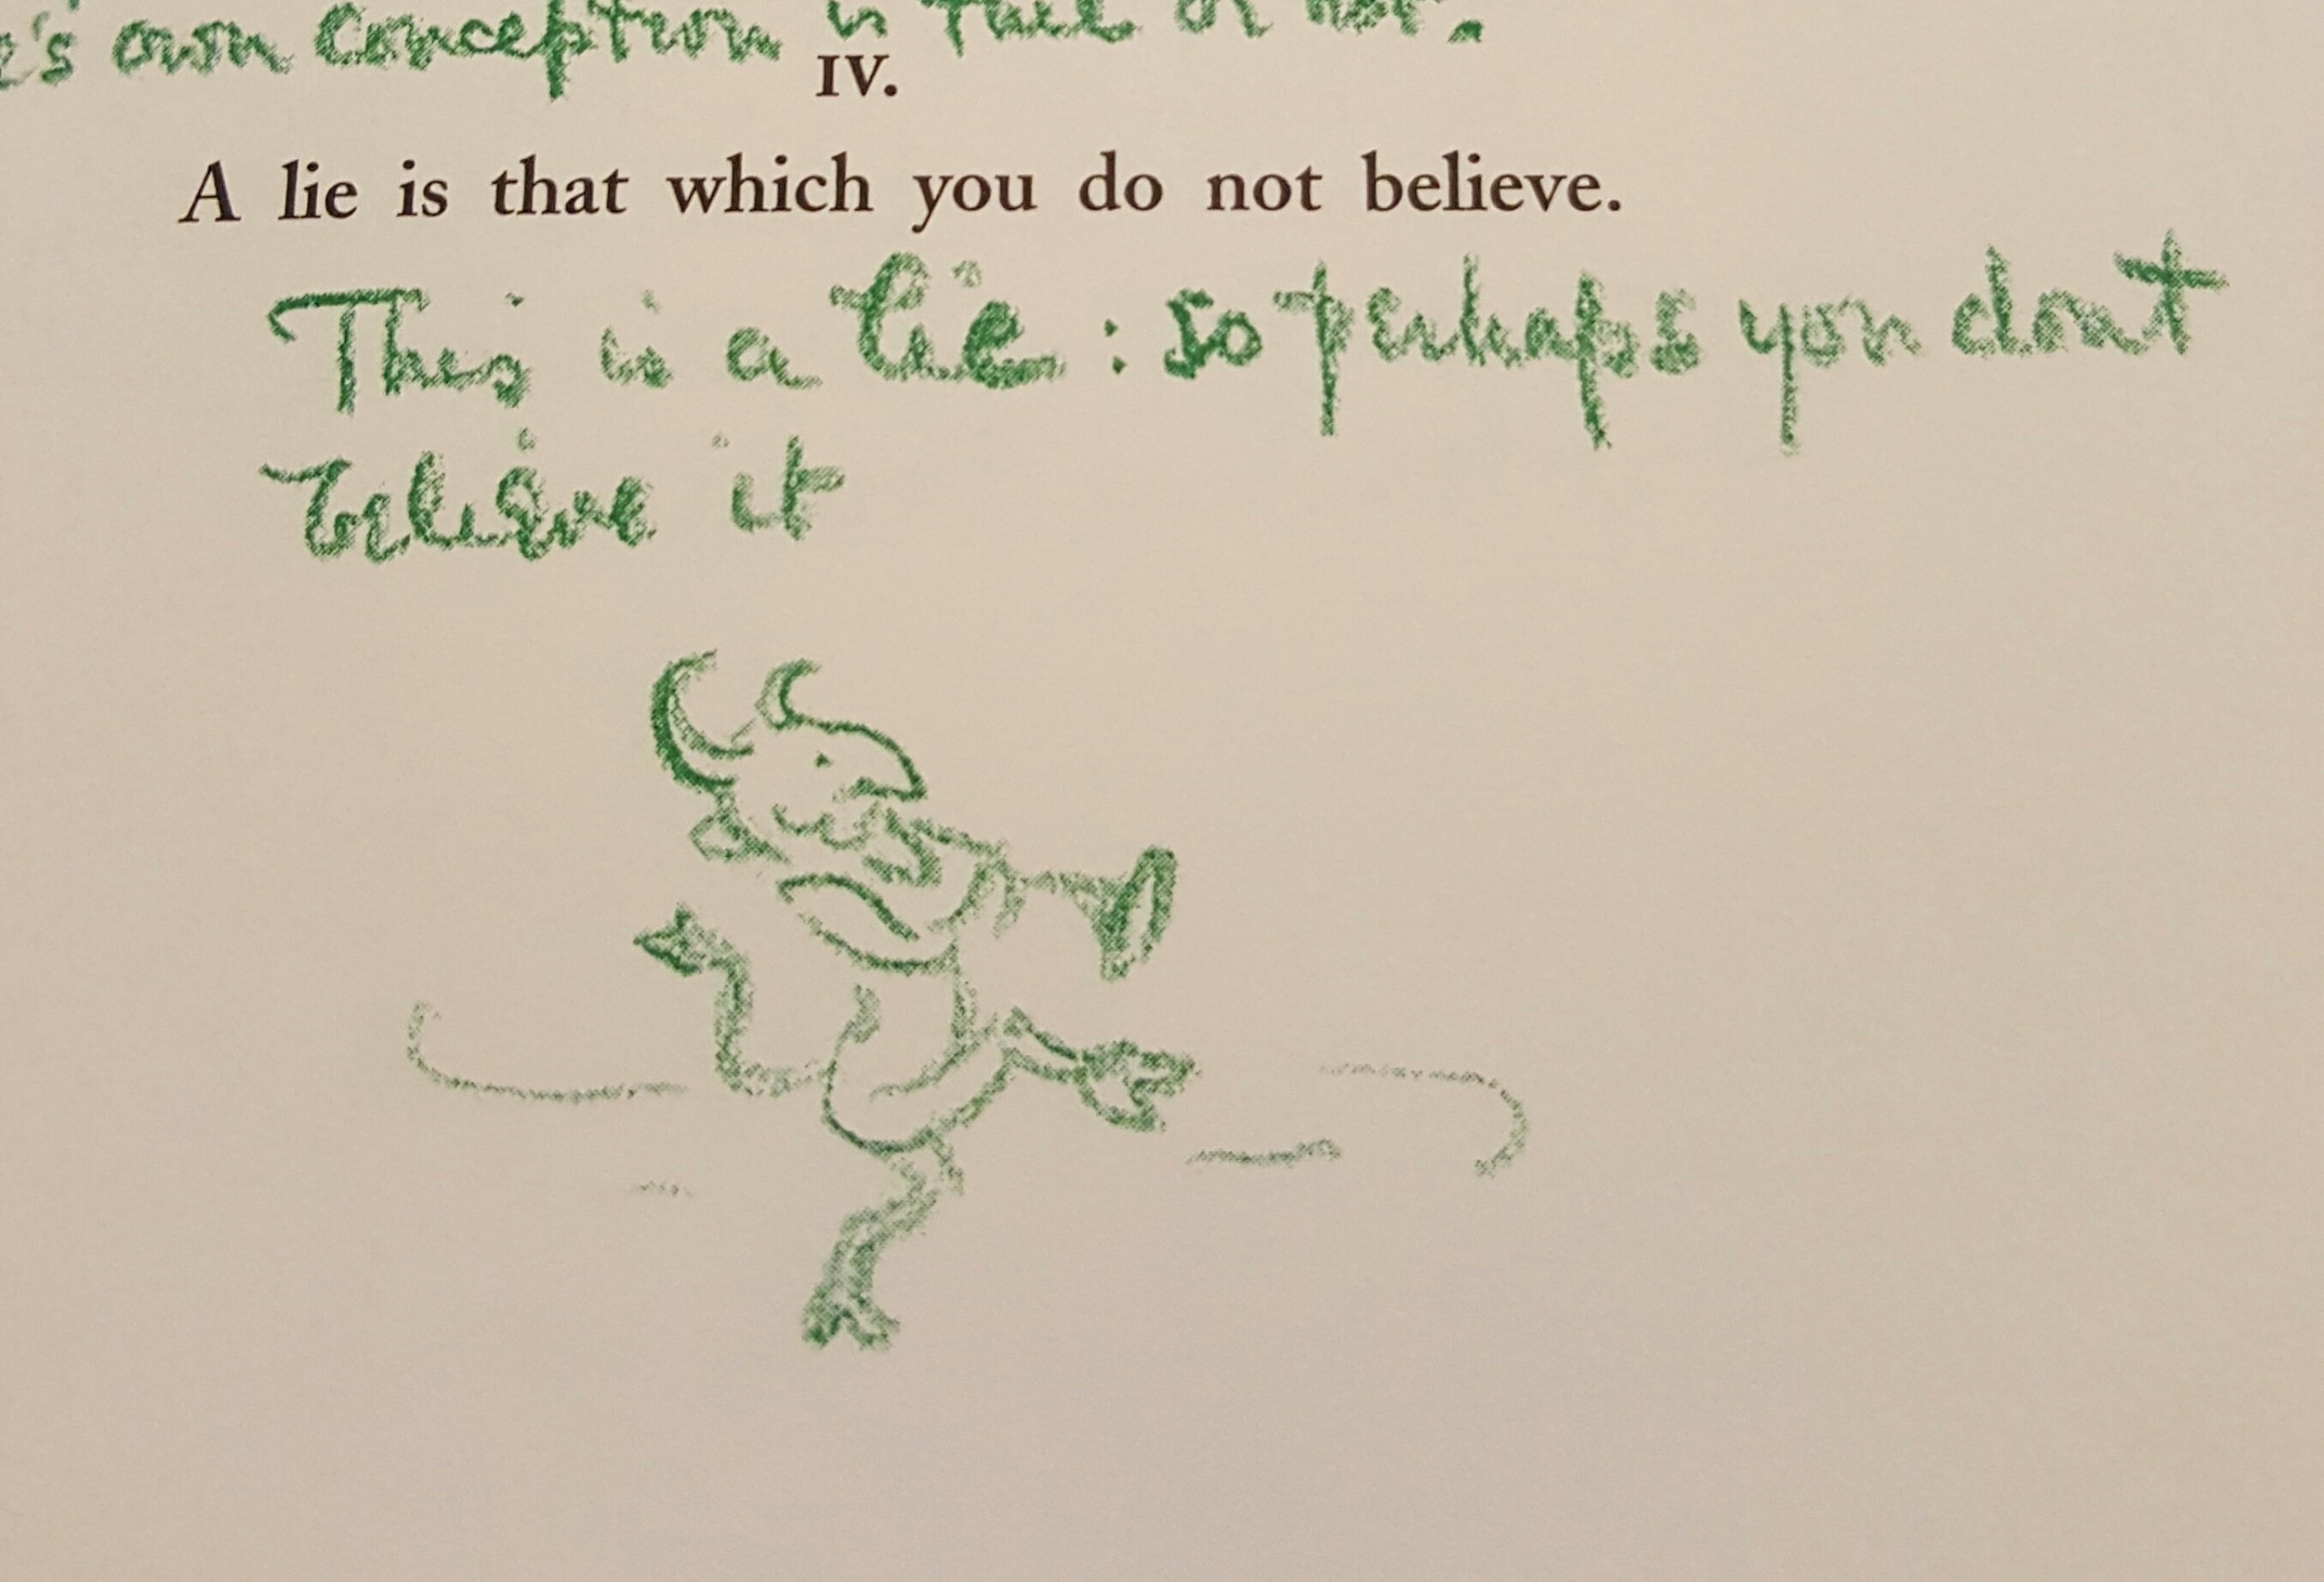 's own conception is full or not.
IV.
A lie is that which you do not believe.
This is a lie : so perhaps you dont
believe it